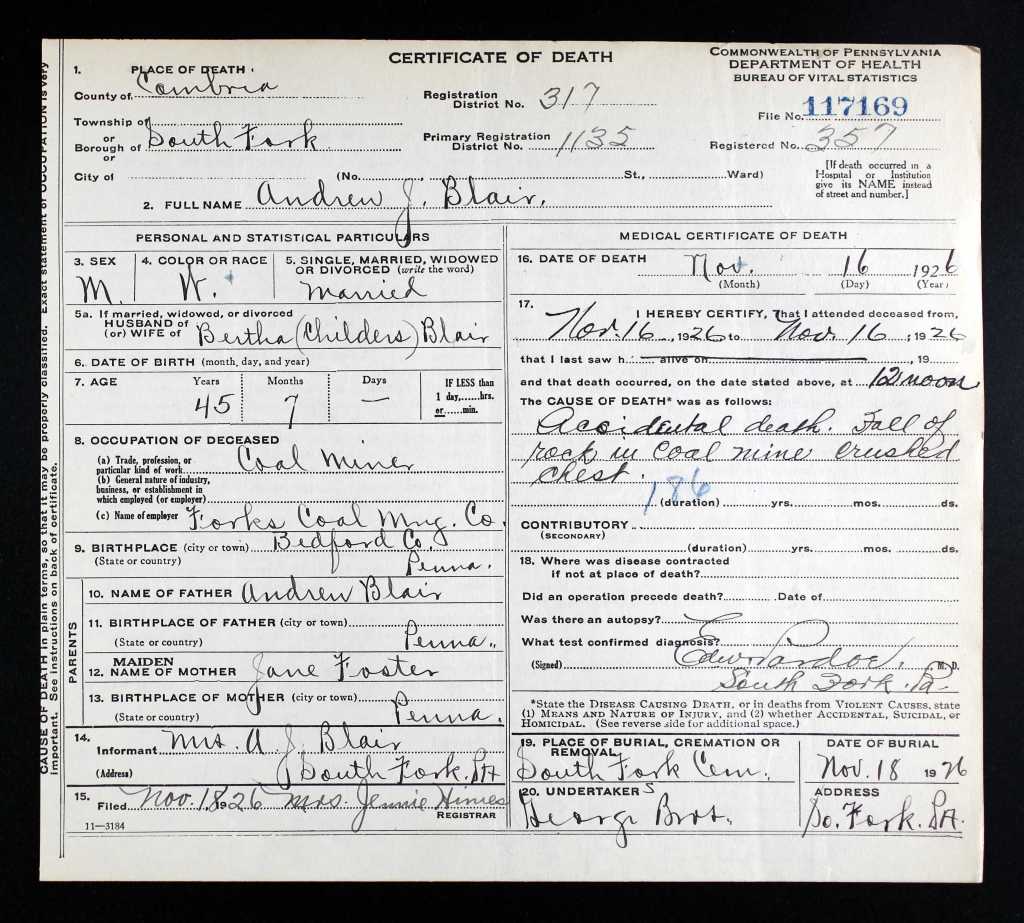 CERTIFICATE OF DEATH
COMMONWEALTH OF PENNSYLVANIA
DEPARTMENT OF HEALTH
BUREAU OF VITAL STATISTICS
1. PLACE OF DEATH.
County of Cambria
Registration District No. 317
File No. 117169
Township of
or
Borough of South Fork
or
Primary Registration District No. 1135
Registered No. 357
City of (No. , St., Ward)
[If death occurred in a Hospital or Institution give its NAME instead of street and number.]
2. FULL NAME Andrew J. Blair.
PERSONAL AND STATISTICAL PARTICULARS
3. SEX M.
4. COLOR OR RACE W.
5. SINGLE, MARRIED, WIDOWED OR DIVORCED (write the word) Married
5a. If married, widowed, or divorced
HUSBAND of
(or) WIFE of Bertha (Childers) Blair
6. DATE OF BIRTH (month, day, and year)
7. AGE Years 45 Months 7 Days —
IF LESS than 1 day,......hrs. or......min.
8. OCCUPATION OF DECEASED
(a) Trade, profession, or particular kind of work Coal Miner
(b) General nature of industry, business, or establishment in which employed (or employer)
(c) Name of employer Forks Coal Mng. Co.
9. BIRTHPLACE (city or town) Bedford Co.
(State or country) Penna.
PARENTS
10. NAME OF FATHER Andrew Blair
11. BIRTHPLACE OF FATHER (city or town)
(State or country) Penna.
12. MAIDEN NAME OF MOTHER Jane Foster
13. BIRTHPLACE OF MOTHER (city or town)
(State or country) Penna.
14.
Informant Mrs. A. J. Blair
(Address) South Fork. PA
15. Filed Nov. 18 1926 Mrs. Jennie Himes
REGISTRAR
11—3184
MEDICAL CERTIFICATE OF DEATH
16. DATE OF DEATH Nov. 16 1926
(Month) (Day) (Year)
17. I HEREBY CERTIFY, That I attended deceased from,
Nov. 16, 1926 to Nov. 16, 1926
that I last saw h. alive on , 19
and that death occurred, on the date stated above, at 12 noon
The CAUSE OF DEATH* was as follows:
Accidental death. Fall of
rock in coal mine crushed
chest.
186
(duration) yrs. mos. ds.
CONTRIBUTORY
(SECONDARY)
(duration) yrs. mos. ds.
18. Where was disease contracted
if not at place of death?
Did an operation precede death? Date of
Was there an autopsy?
What test confirmed diagnosis?
(Signed) Edw. Pardoe. M. D.
South Fork. Pa.
*State the DISEASE CAUSING DEATH, or in deaths from VIOLENT CAUSES, state
(1) MEANS AND NATURE OF INJURY, and (2) whether ACCIDENTAL, SUICIDAL, or
HOMICIDAL. (See reverse side for additional space.)
19. PLACE OF BURIAL, CREMATION OR REMOVAL South Fork Cem.
DATE OF BURIAL Nov. 18 1926
20. UNDERTAKERS George Bros.
ADDRESS So. Fork. PA.
CAUSE OF DEATH in plain terms, so that it may be properly classified. Exact statement of OCCUPATION is very
important. See instructions on back of certificate.